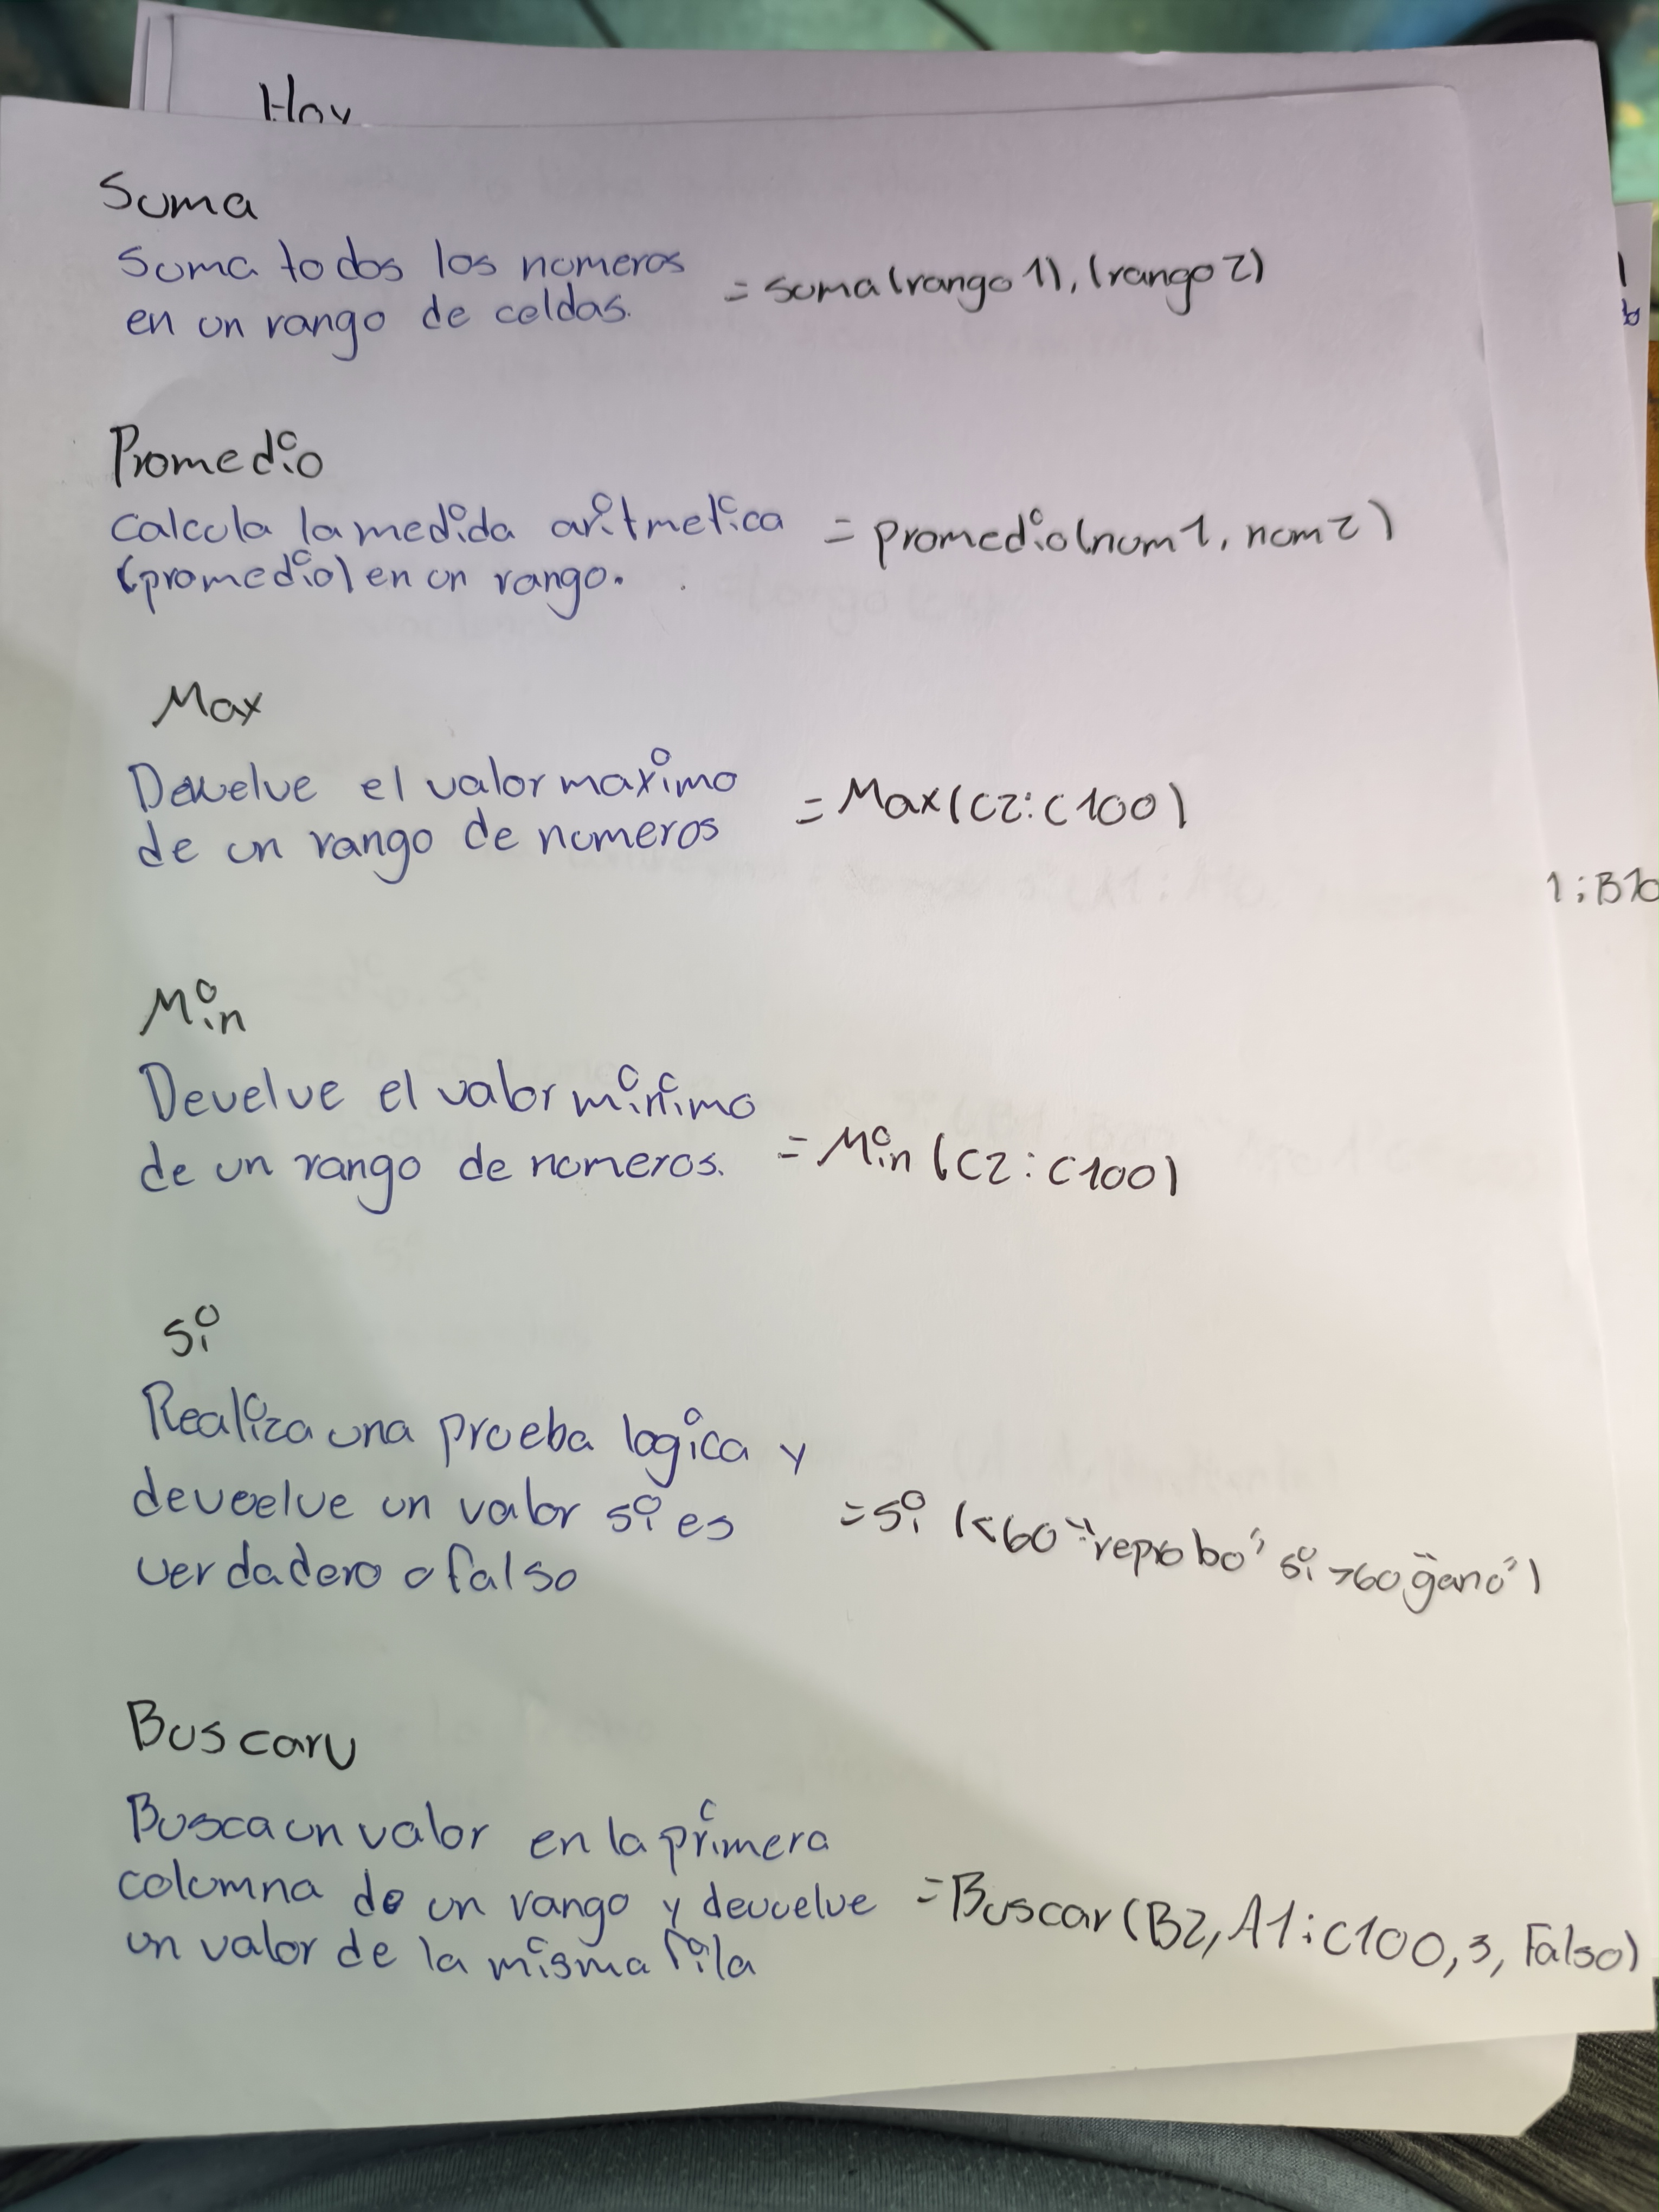 Hoy
Suma
Suma todos los numeros
en un rango de celdas.
= suma (rango 1), (rango 2)
Promedio
Calcula la medida aritmetica
(promedio) en un rango.
= promedio (num 1, num 2)
Max
Devuelve el valor maximo
de un rango de numeros
= Max (C2: C100)
1; B10
Min
Devuelve el valor minimo
de un rango de numeros.
= Min (C2 : C100)
Si
Realiza una prueba logica y
devuelve un valor si es
verdadero o falso
= si (<60 "reprobo" si >60 "gano")
Buscaru
Busca un valor en la primera
columna de un rango y devuelve
un valor de la misma fila
= Buscar (B2, A1: C100, 3, Falso)